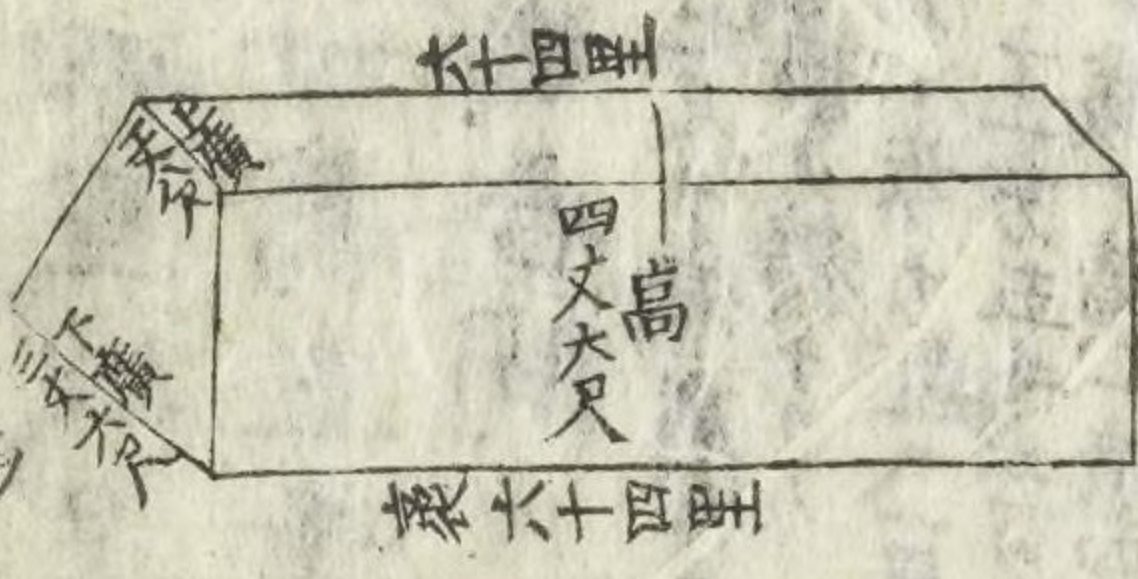 六十四里
上廣
丈六尺
高
四丈六尺
下廣
三丈六尺
袤六十四里